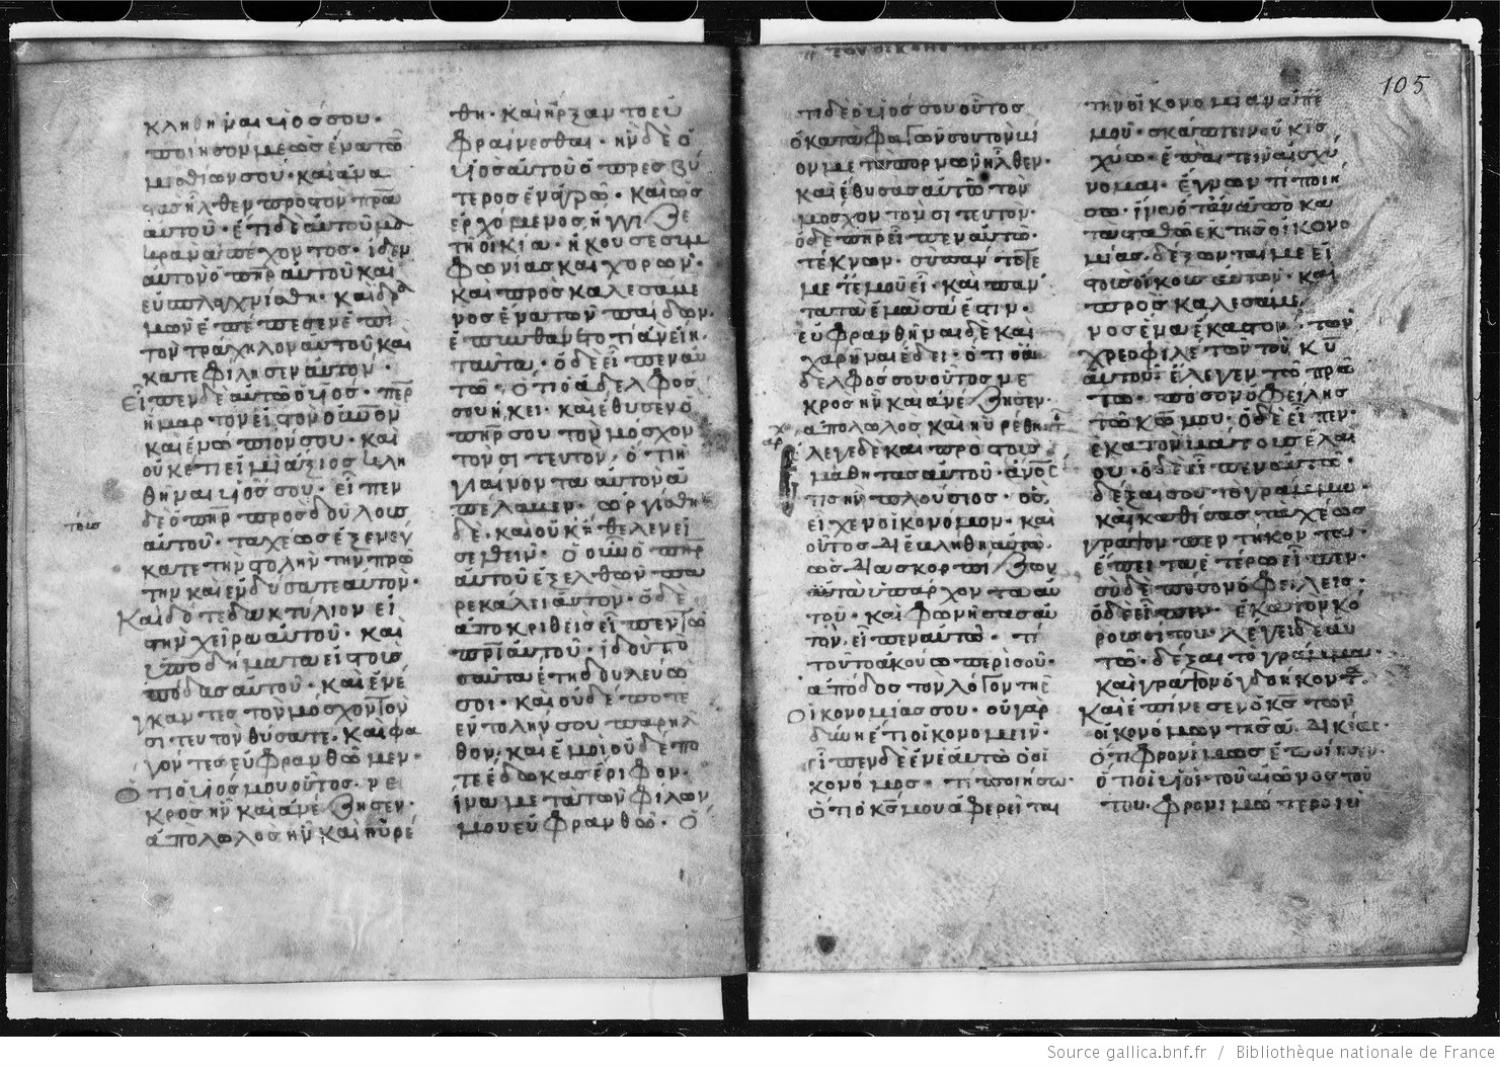 κληθῆναι υἱός σου·
ποίησόν με ὡς ἕνα τῶ
μισθίων σου· καὶ ἀνα
στὰς ἦλθεν προς τον πρα
αυτοῦ· ἔτι δὲ αὐτοῦ μα
κρὰν ἀπέχοντος· ἴδεν
αὐτὸν ὁ πηρ αὐτοῦ καὶ
εὐσπλαγχνίσθη· καὶ δρα
μὼν ἐπέπεσεν ἐπὶ
τὸν τράχηλον αὐτοῦ και
κατεφίλησεν αὐτόν·
Εἶπεν δὲ αὐτῶ ὁ υἱός· περ
ἥμαρτον εἰς τὸν οὐνον
καὶ ἐνώπιόν σου· καὶ
οὐκέτι εἰμὶ ἄξιος κλη
θῆναι υἱός σου· εἶπεν
δὲ ὁ πηρ προς δούλους
τοὺς
αὐτοῦ· ταχέως ἐξενέγ
κατε τὴν στολὴν τὴν πρώ
την καὶ ἐνδύσατε αὐτον·
Καὶ δότε δακτύλιον εἰ
στην χεῖρα αυτοῦ· καὶ
ὑποδήματα εἰς τοὺς
πόδας αὐτοῦ· καὶ ἐνέ
γκαντες τον μόσχον τὸν
σιτευτὸν θύσατε· καὶ φα
γόντες εὐφρανθῶμεν·
Ὅτι ὁ υἱός μου οὗτος νε
κρὸς ἦν καὶ ἀνέζησεν·
ἀπολωλος ἦν καὶ ηὑρέ
θη· καὶ ἤρξαντο εὐ
φραίνεσθαι· ἦν δὲ ὁ
υἱὸς αὐτοῦ ὁ πρεσβύ
τερος ἐν ἀγρῶ· καὶ ὡς
ἐρχόμενος ἤγγιζε
τῆ οἰκία· ἤκουσε συμ
φωνίας καὶ χορῶν·
καὶ προσκαλεσάμε
νος ἕνα τῶν παίδων·
ἐπυνθάνετο τί ἂν εἴη
ταῦτα· ὁ δὲ εἶπεν αὐ
τῶ· ὅτι ὁ ἀδελφός
σου ἥκει· καὶ ἔθυσεν ὁ
πηρ σου τον μόσχον
τον σιτευτον· ὅτι ὑ
γιαίνοντα αὐτὸν ἀ
πέλαβεν· ὠργίσθη
δὲ· καὶ οὐκ ἤθελεν εἰ
σελθεῖν· ὁ οὖν ὁ πηρ
αὐτοῦ ἐξελθὼν πα
ρεκάλει αὐτον· ὁ δὲ
ἀποκριθεὶς εἶπεν τῶ
πρὶ αὐτοῦ· ἰδοὺ το
σαῦτα ἔτη δουλεύω
σοι· καὶ οὐδέποτε
ἐντολήν σου παρῆλ
θον· καὶ ἐμοὶ οὐδέπο
τε ἔδωκας ἔριφον·
ἵνα μετὰ τῶν φίλων
μου εὐφρανθῶ· ὁ
105
τε δὲ ὁ υἱός σου οὗτος
ὁ καταφαγών σου τὸν βί
ον μετὰ πορνῶν ἦλθεν·
καὶ ἔθυσας αὐτῶ τὸν
μόσχον τον σιτευτόν·
ὁ δὲ πηρ εἶπεν αὐτῶ·
τέκνον· σὺ πάντοτε
μετ' ἐμοῦ εἶ· καὶ πάν
τα τὰ ἐμὰ σά ἐστιν·
εὐφρανθῆναι δὲ καὶ
χαρῆναι ἔδει· ὅτι ὁ ἀ
δελφός σου οὗτος νε
κρὸς ἦν καὶ ἀνέζησεν·
ἀπολωλος καὶ ηὑρέθη·
λεγε δὲ καὶ πρὸς τους
μαθητας αὐτοῦ· ἀνός
τις ἦν πλούσιος· ὃς
εἶχεν οἰκονόμον· καὶ
οὗτος διεβλήθη αὐτῶ·
ὡς διασκορπίζων
τὰ ὑπάρχοντα αὐ
τοῦ· καὶ φωνήσας αὐ
τὸν· εἶπεν αὐτῶ· τί
τοῦτο ἀκούω περὶ σοῦ·
ἀπόδος τὸν λόγον της
Οἰκονομίας σου· οὐ γαρ
δύνη ἔτι οἰκονομεῖν·
εἶπεν δὲ ἐν ἑαυτῶ ὁ οἰ
κονόμος· τί ποιήσω·
ὅτι ὁ κς μου ἀφερεῖται
τὴν οἰκονομίαν ἀπ' ἐ
μοῦ· σκάπτειν οὐκ ἰσ
χύω· ἐπαιτεῖν αἰσχύ
νομαι· ἔγνων τί ποιή
σω· ἵνα ὅταν ἀπο κα
τασταθῶ ἐκ της οἰκονο
μίας· δέξωνταί με εἰ
ς τοὺς οἴκους αὐτῶν· καὶ
προσκαλεσάμε
νος ἕνα ἕκαστον· τῶν
χρεοφιλετῶν τοῦ κυ
αὐτοῦ· ἔλεγεν τῶ πρώ
τω· πόσον ὀφείλης
τῶ κω μου· ὁ δὲ εἶπεν·
ἑκατον βάτους ἐλαί
ου· ὁ δὲ εἶπεν αὐτῶ·
δέξαι σου τὸ γράμμα·
καὶ καθίσας ταχέως
γράψον πεντήκοντα·
ἔπειτα ἑτέρω εἶπεν·
σὺ δὲ πόσον ὀφείλεις·
ὁ δὲ εἶπεν· ἑκατον κό
ρους σίτου· λέγει δὲ αὐ
τῶ· δέξαι τὸ γράμμα·
καὶ γράψον ὀγδοήκοντα·
Καὶ ἐπήνεσεν ὁ κς τὸν
οἰκονόμον της ἀδικίας·
ὅτι φρονίμως ἐποίησεν·
ὅτι οἱ υἱοὶ τοῦ αἰῶνος τού
του· φρονιμώτεροι ὑ
Source gallica.bnf.fr / Bibliothèque nationale de France